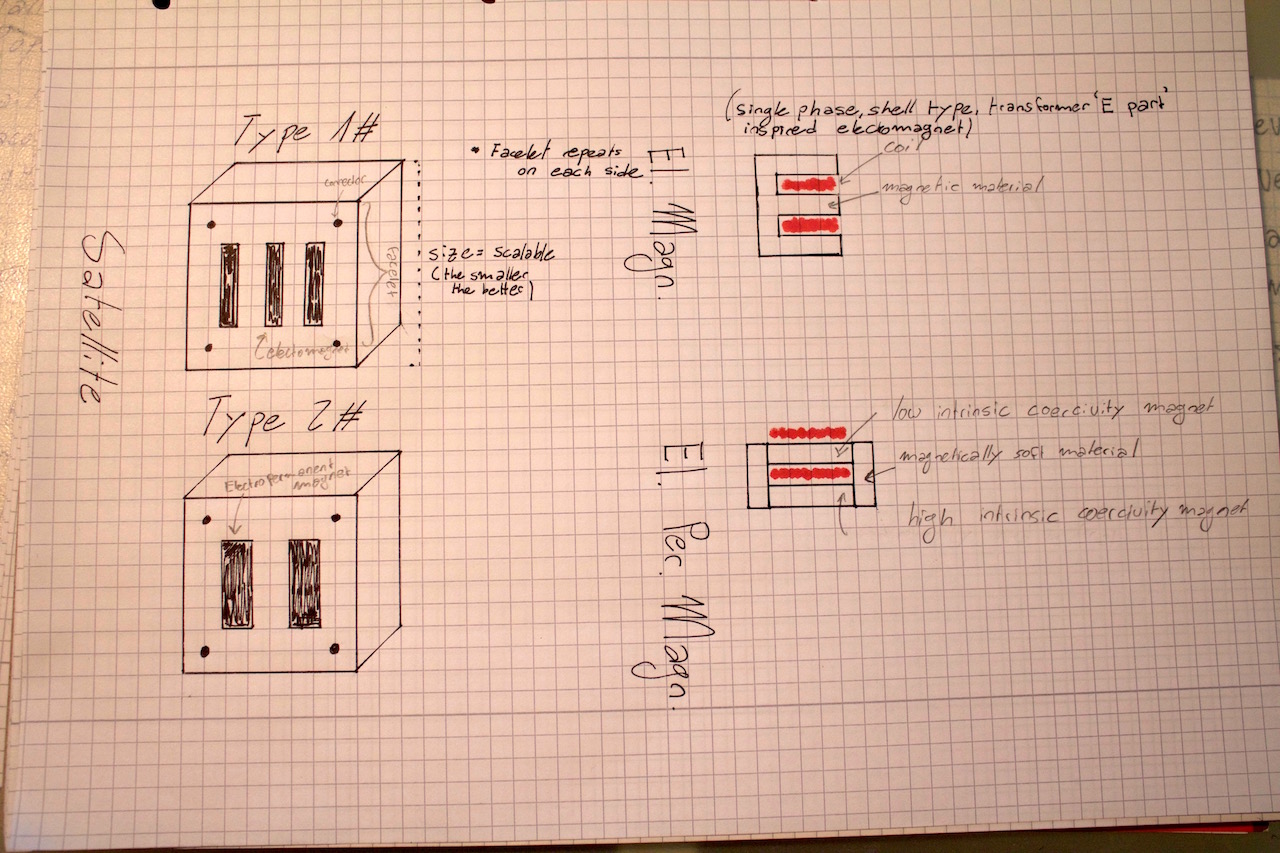 Type 1#
connector
facelet
electomagnet
* Facelet repeats
on each side
size = scalable
(the smaller
the better)
Satellite
Type 2#
Electropermanent
magnet
(single phase, shell type, transformer 'E part'
inspired electomagnet)
El. Magn.
coil
magnetic material
El. Per. Magn.
low intrinsic coercivity magnet
magnetically soft material
high intrinsic coercivity magnet